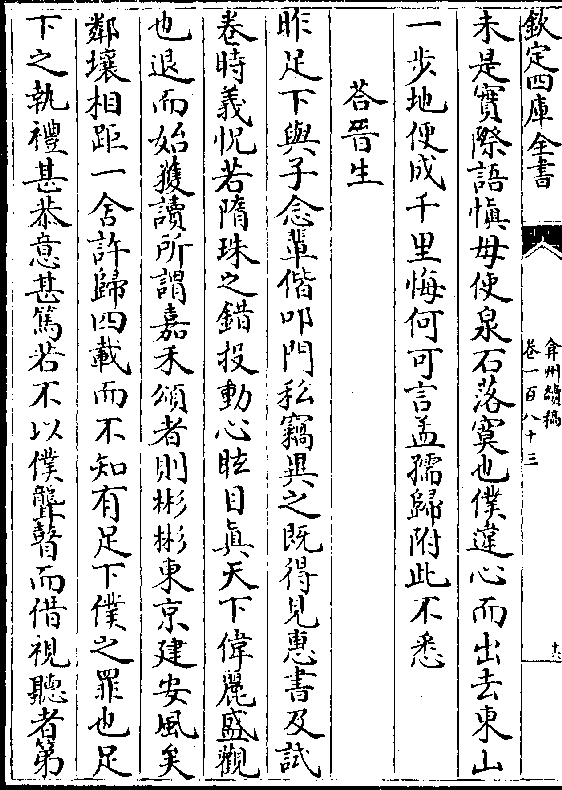 欽定四庫全書
弇州續稿
卷一百八十三
未是實際語愼毋使泉石落寞也僕違心而出去東山
一步地便成千里悔何可言孟孺歸附此不悉
荅晉生
昨足下與子念輩偕叩門私竊異之既得見惠書及試
卷時義怳若隋珠之錯投動心眩目眞天下偉麗盛觀
也退而始獲讀所謂嘉禾頌者則彬彬東京建安風矣
鄰壤相距一舍許歸四載而不知有足下僕之罪也足
下之執禮甚恭意甚篤若不以僕聾瞽而借視聽者第